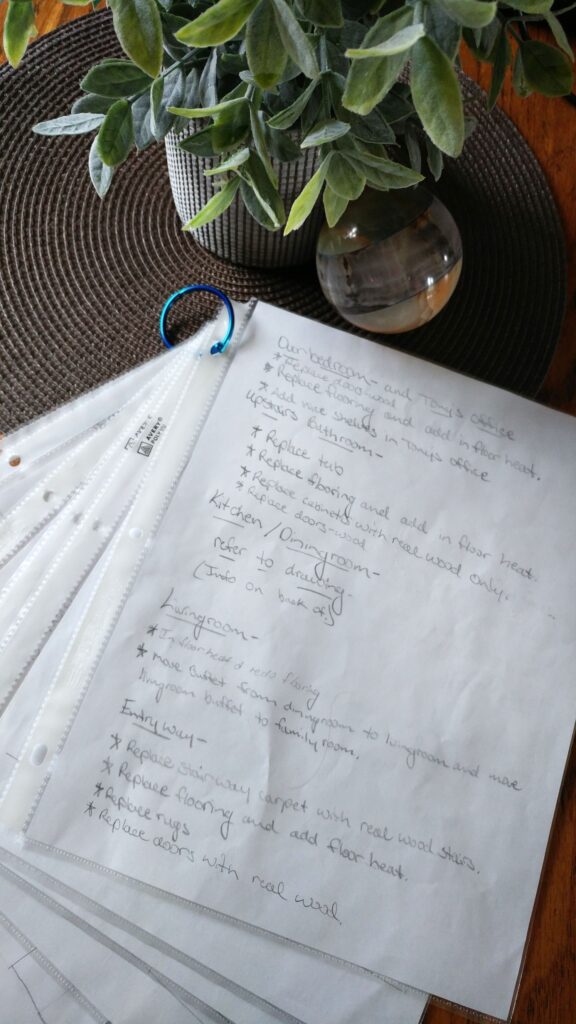 Our bedroom - and Tony's Office
* Replace door-wood
* Replace flooring and add in floor heat.
* Add nice shelves in Tony's office
Upstairs Bathroom -
* Replace tub
* Replace flooring and add in floor heat.
* Replace cabinets with real wood only.
* Replace doors-wood
Kitchen / Diningroom -
refer to drawing.
(Info on back of)
Livingroom -
* In floor heat & flooring
* Move Buffet from diningroom to livingroom and move
livingroom buffet to family room.
Entry way -
* Replace stairway carpet with real wood stairs.
* Replace flooring and add floor heat.
* Replace rugs
* Replace doors with real wood.
AVERY®